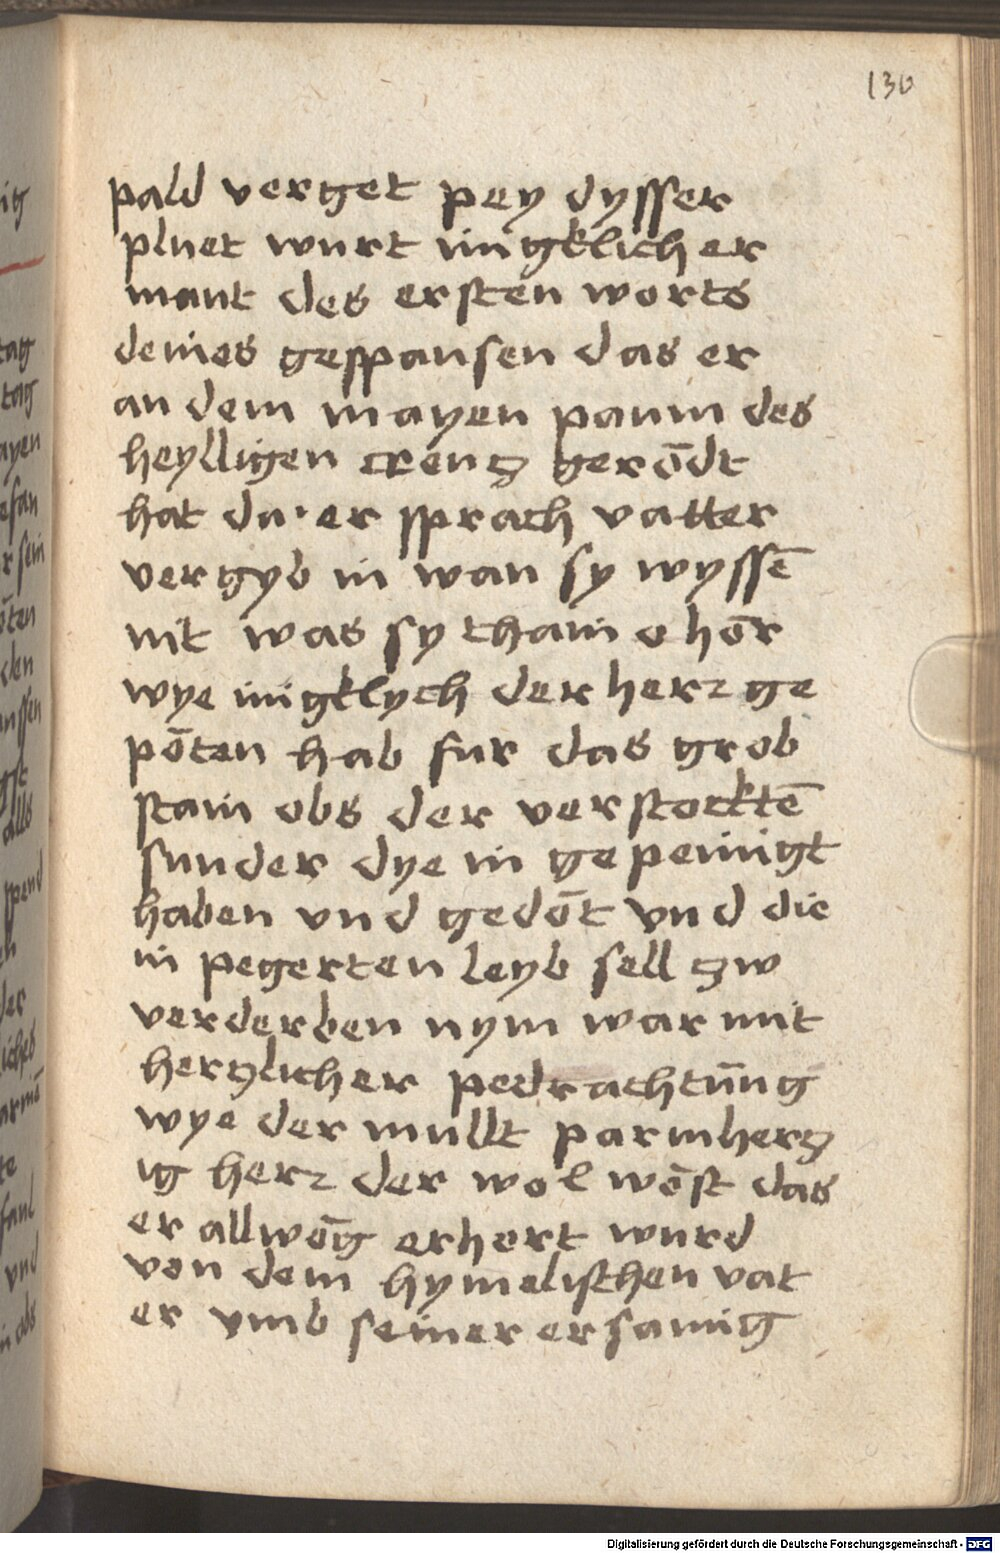 130
pald verget pey dysser
pluet wurt inigklich er
mant des ersten worts
deines gespausen das er
an dem mayen paum des
heylligen creutz gerödt
hat da er sprach vatter
vergyb in wan sy wyssē
nit was sy thain o hör
wye inigklych der herz ge
pöten hab fur das grob
stain obs der verstocktē
sunder dye in gepeinigt
haben vnd gedöt vnd die
in pegerten leyb sell tzw
verderben nym war mit
hertzlicher pedrachtūng
wye der mullt parmhertz
ig herz der wol wöst das
er allwög erhort wurd
von dem hymelischen vat
er vmb seiner ersamig
Digitalisierung gefördert durch die Deutsche Forschungsgemeinschaft - DFG